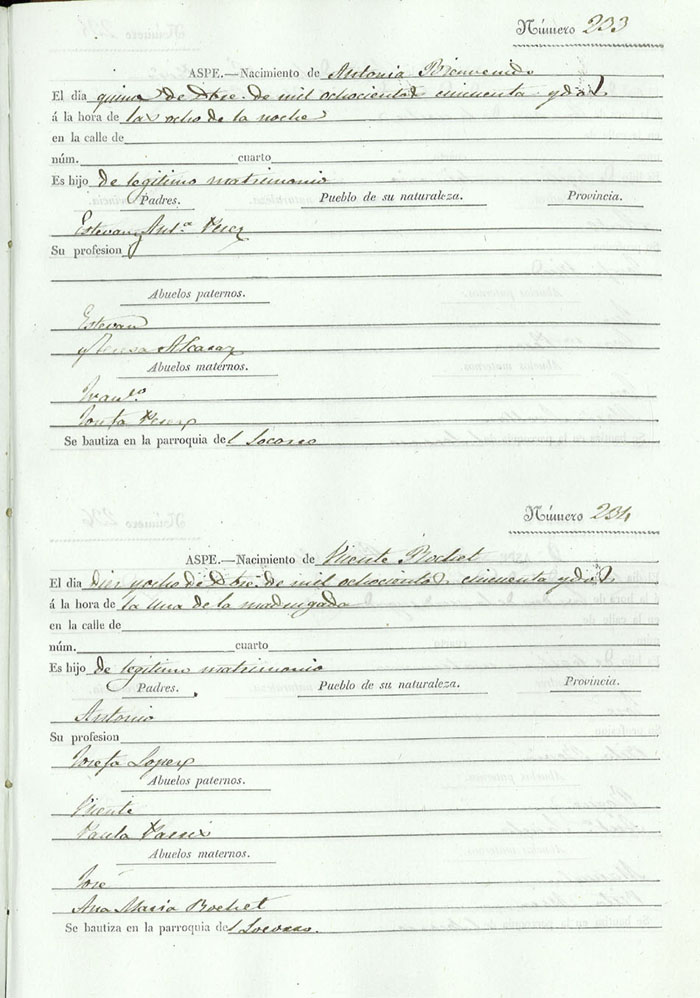 Número 233
ASPE.—Nacimiento de Antonia Bienvenido
El dia quince de Dbre. de mil ochocientos cincuenta y dos
á la hora de las ocho de la noche
en la calle de
núm. cuarto
Es hijo de legitimo matrimonio
Padres. Pueblo de su naturaleza. Provincia.
Estevan y Ant.ª Perez
Su profesion
Abuelos paternos.
Estevan
y Teresa Alcaraz
Abuelos maternos.
Fran.co
Josefa Perez
Se bautiza en la parroquia del Socorro
Número 234
ASPE.—Nacimiento de Vicente Bochet
El dia diez y ocho de Dbre. de mil ochocientos cincuenta y dos
á la hora de la una de la madrugada
en la calle de
núm. cuarto
Es hijo de legitimo matrimonio
Padres. Pueblo de su naturaleza. Provincia.
Antonio
Su profesion
Josefa Lopez
Abuelos paternos.
Vicente
Abuelos maternos.
José
Ana Maria Bochet
Se bautiza en la parroquia del Socorro.